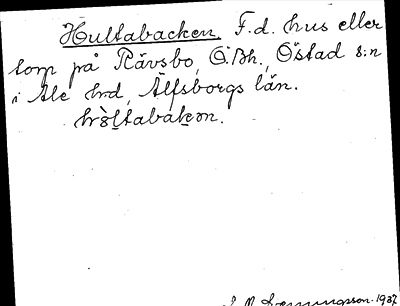 Hultabacken. F.d. hus eller
torp på Rävsbo, Ö.Bh., Östad s:n
i Ale hrd, Älfsborgs län.
1937